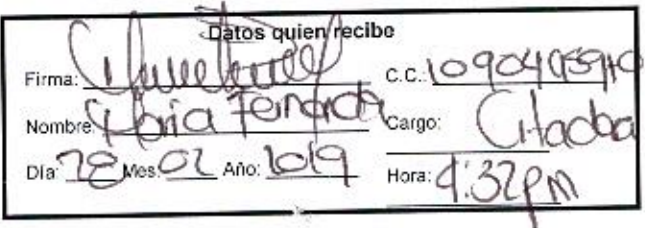 Datos quien recibe
Firma: C.C.: 1090405940
Nombre: Maria Fernanda Cargo: Citadora
Día: 28 Mes: 02 Año: 2019 Hora: 4:32pm